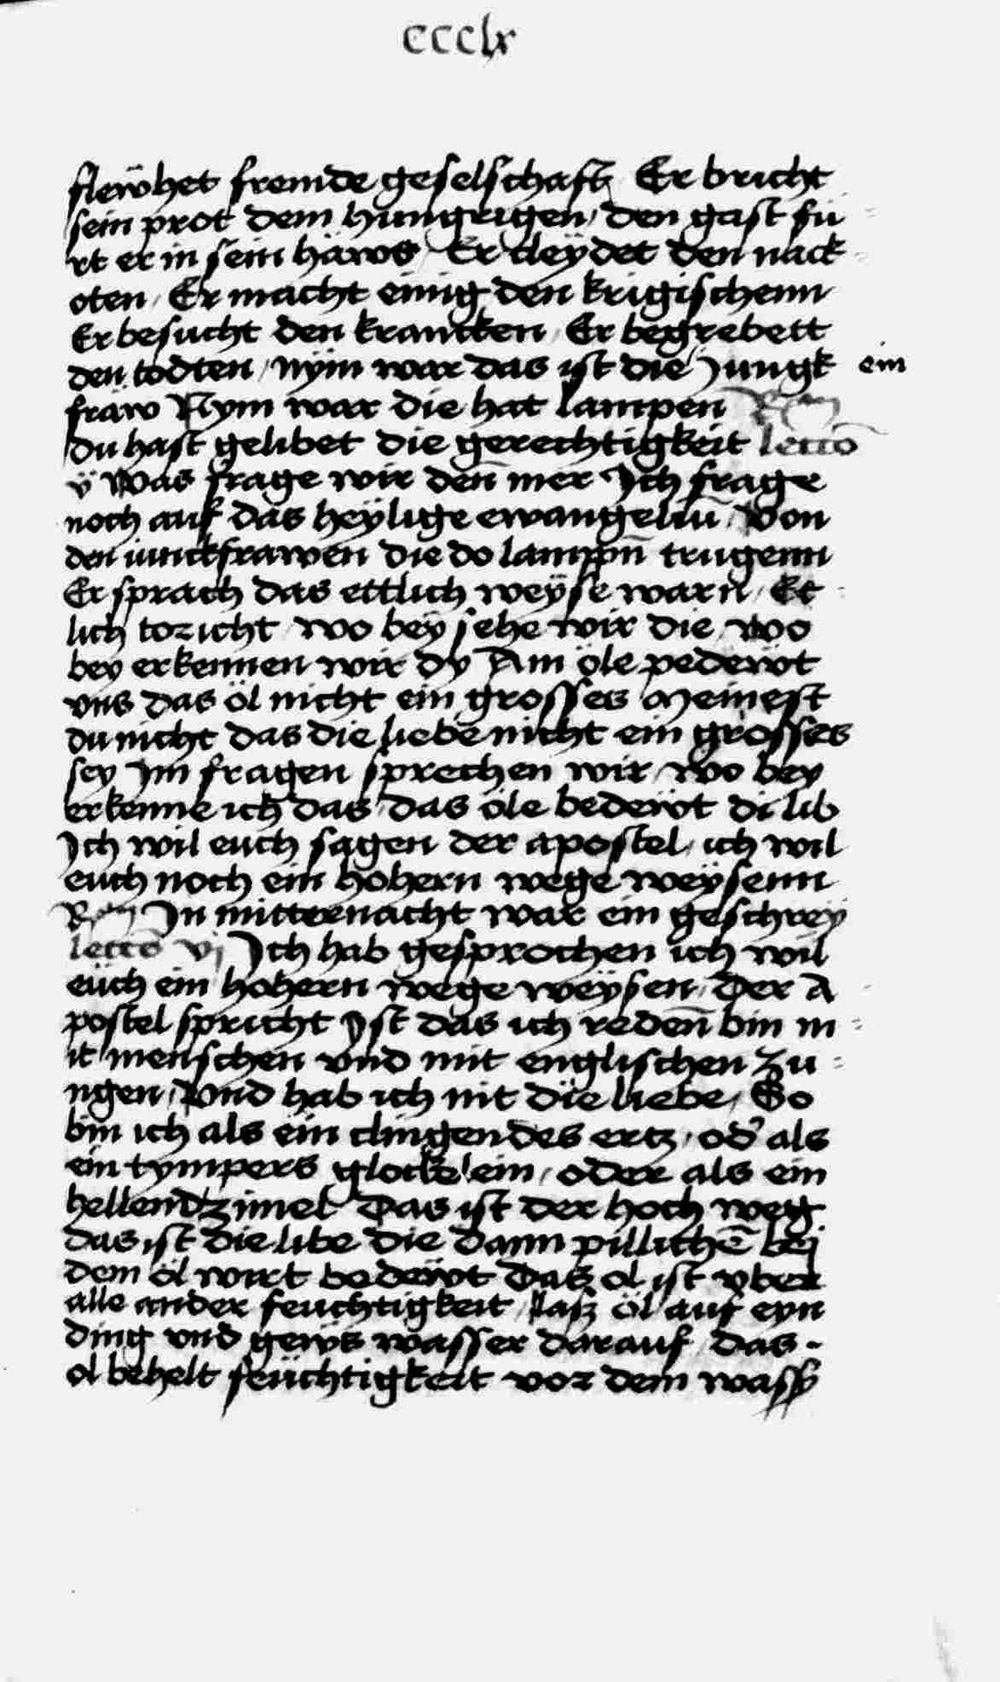 ccclx
flewhet fremde geselschaft Er bricht
sein prot dem hungrigen / den gast fu
rt er in sein haws / Er cleydet den nack
oten / Er macht einig den krigischenn
Er besucht den krancken / Er begrebett
den todten / nym war das ist die Jungk ein
fraw Nym war die hat lampen
du hast gelibet die gerechtigkeit lecto
v Was frage wir den mer Ich frage
noch auf das heylige ewangeliū / Von
den iunckfrawen die do lampn̄ trugenn
Er sprach das ettlich weyse warn / Et
lich toricht / wo bey sehe wir die / wo
bey erkennen wir dy Am öle pedewt
vns das öl nicht ein grosses Meinest
du nicht das die liebe nicht ein grosses
sey Im fragen sprechen wir / wo bey
erkenne ich das / das öle bedewt di lib
Ich wil euch sagen der apostel / ich wil
euch noch ein hohern wege weysenn
Rm̄ In mitternacht war ein geschrey
lecto vj Ich hab gesprochen ich wil
euch ein hohern wege weysen / Der A
postel spricht Ist das ich reden̄ bin m
it menschen vnd mit englischen zu
ngen / Vnd hab ich nit die liebe / So
bin ich als ein clingendes ertz / od' als
ein tympers glocklein / oder als ein
hellendzimel Das ist der hoch weg
das ist die libe die dann pillichē bei
dem öl wirt bedewt Das ol ist vber
alle ander feuchtigkeit / laß öl auf eyn
ding vnd gews wasser darauf / das
ol behelt feuchtigkeit vor dem wasß